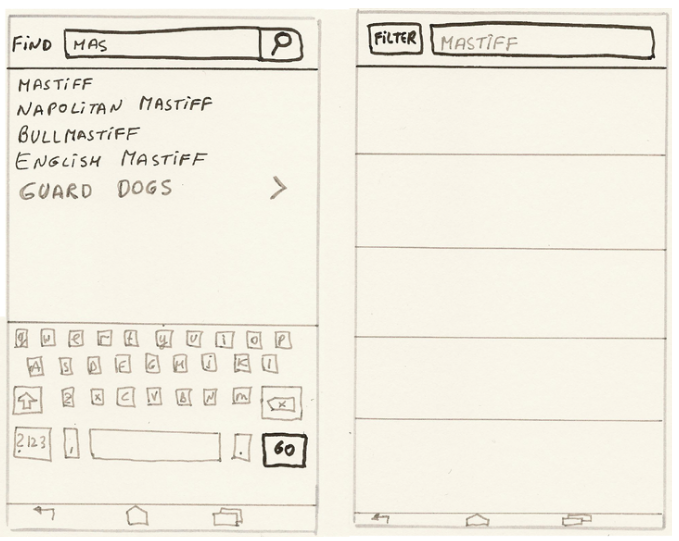 FiND MAS
MASTiFF
NAPOLiTAN MASTiFF
BULLMASTiFF
ENGLiSH MASTiFF
GUARD DOGS >
q w e r t y U I O P
A S D F G H j K l
z x C V B N m
?123 , . GO
FiLTER MASTiFF